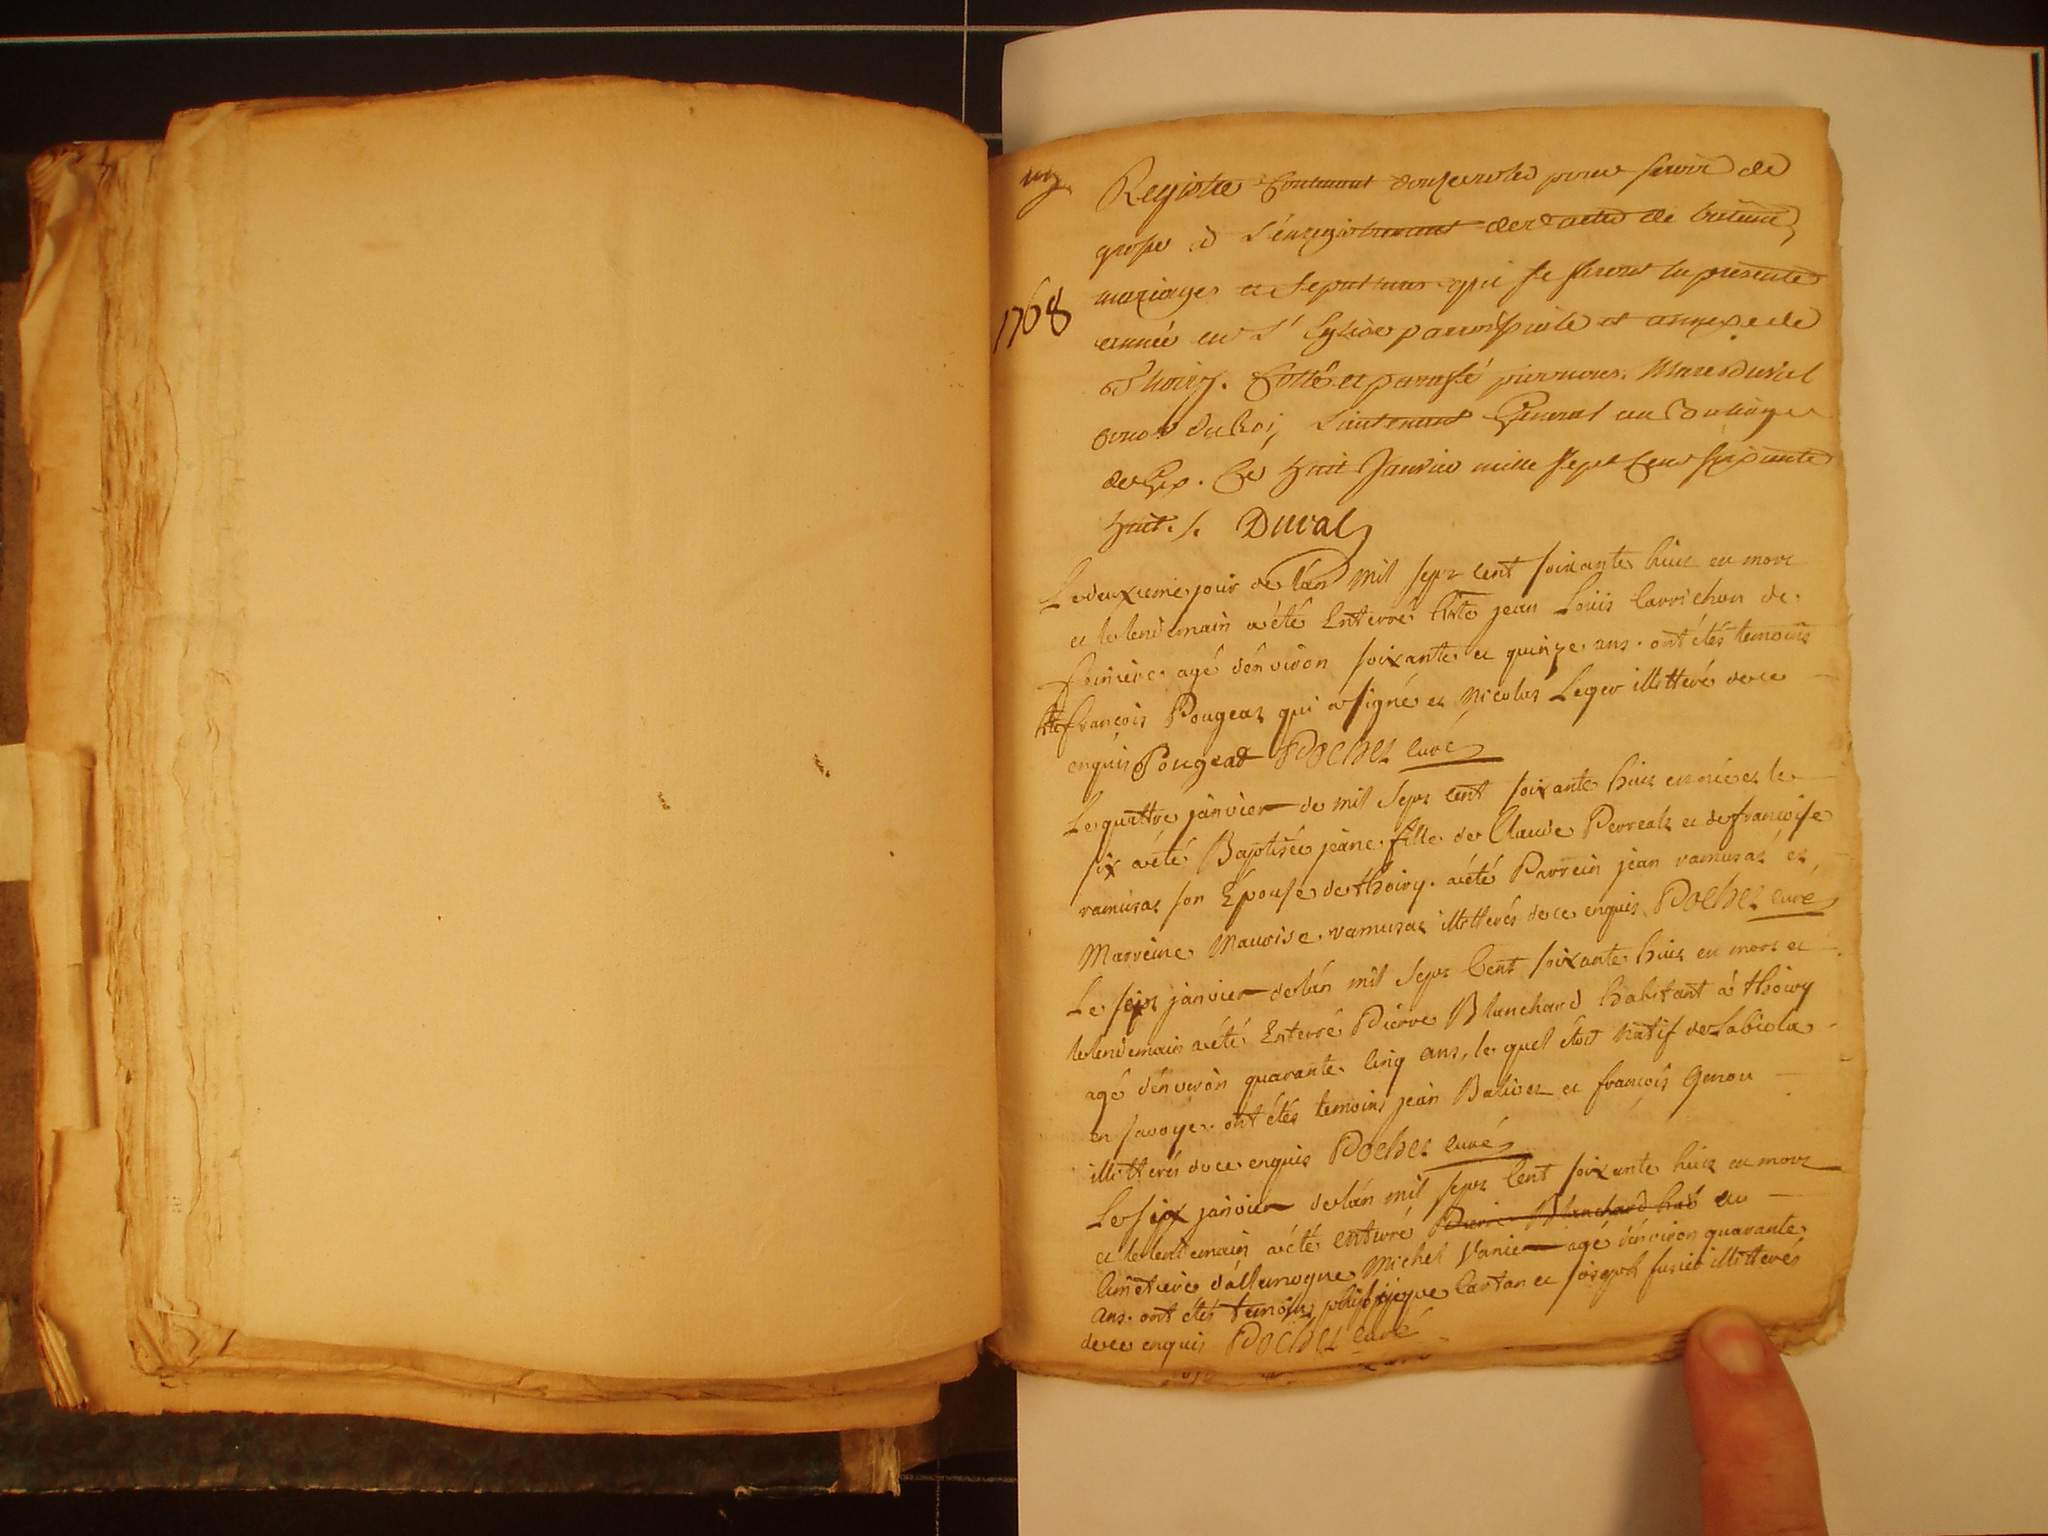 Registre Contenant douze roles pour servir de
grosse à L'enregistrement des actes de batême,
mariages et Sepultures qui se feront la presente
année en L'Eglise parroissiale et annexe de
Thoiry. Cotté et parafé par nous. Marc Duval
du Roi, Lieutenant General au Bailiage
de Gex. Ce huit Janvier mille sept Cent soixante
huit. /. Duval
1768
Le deuxieme jour de l'an mil sept cent soixante huit en mort
et le lendemain a été Enterré jean Loüis Carrichon de
agé d'environ soixante et quinze ans. ont étés temoins
françois Pougeat qui a signé et Nicolas Leger illitteré de ce
enquis Pougeat Pochet curé
Le quattre janvier de mil sept cent soixante huit est née et le
six a été Baptisée jeane fille de Claude Perreals et de françoise
ramusat son Epouse de thoiry. a été Parrein jean ramusat et
Marreine Maurise ramusat illitterés de ce enquis Pochet curé
Le sept janvier de l'an mil sept Cent soixante huit en mort et
le lendemain a été Enterré Pierre Blanchard habitant à thoiry
agé d'environ quarante cinq ans, le quel étoit natif de Labiola
en savoye. ont étés temoins jean Balivet et françois Genou
illitterés de ce enquis Pochet curé
Le six janvier de l'an mil sept Cent soixante huit en mort
et le lendemain a été enterré Pierre Blanchard hab au
Cimetiere d'allemogne Michel Vanier agé d'environ quarante
ans. ont étés temoins Cartan et joseph fusier illitterés
de ce enquis Pochet curé